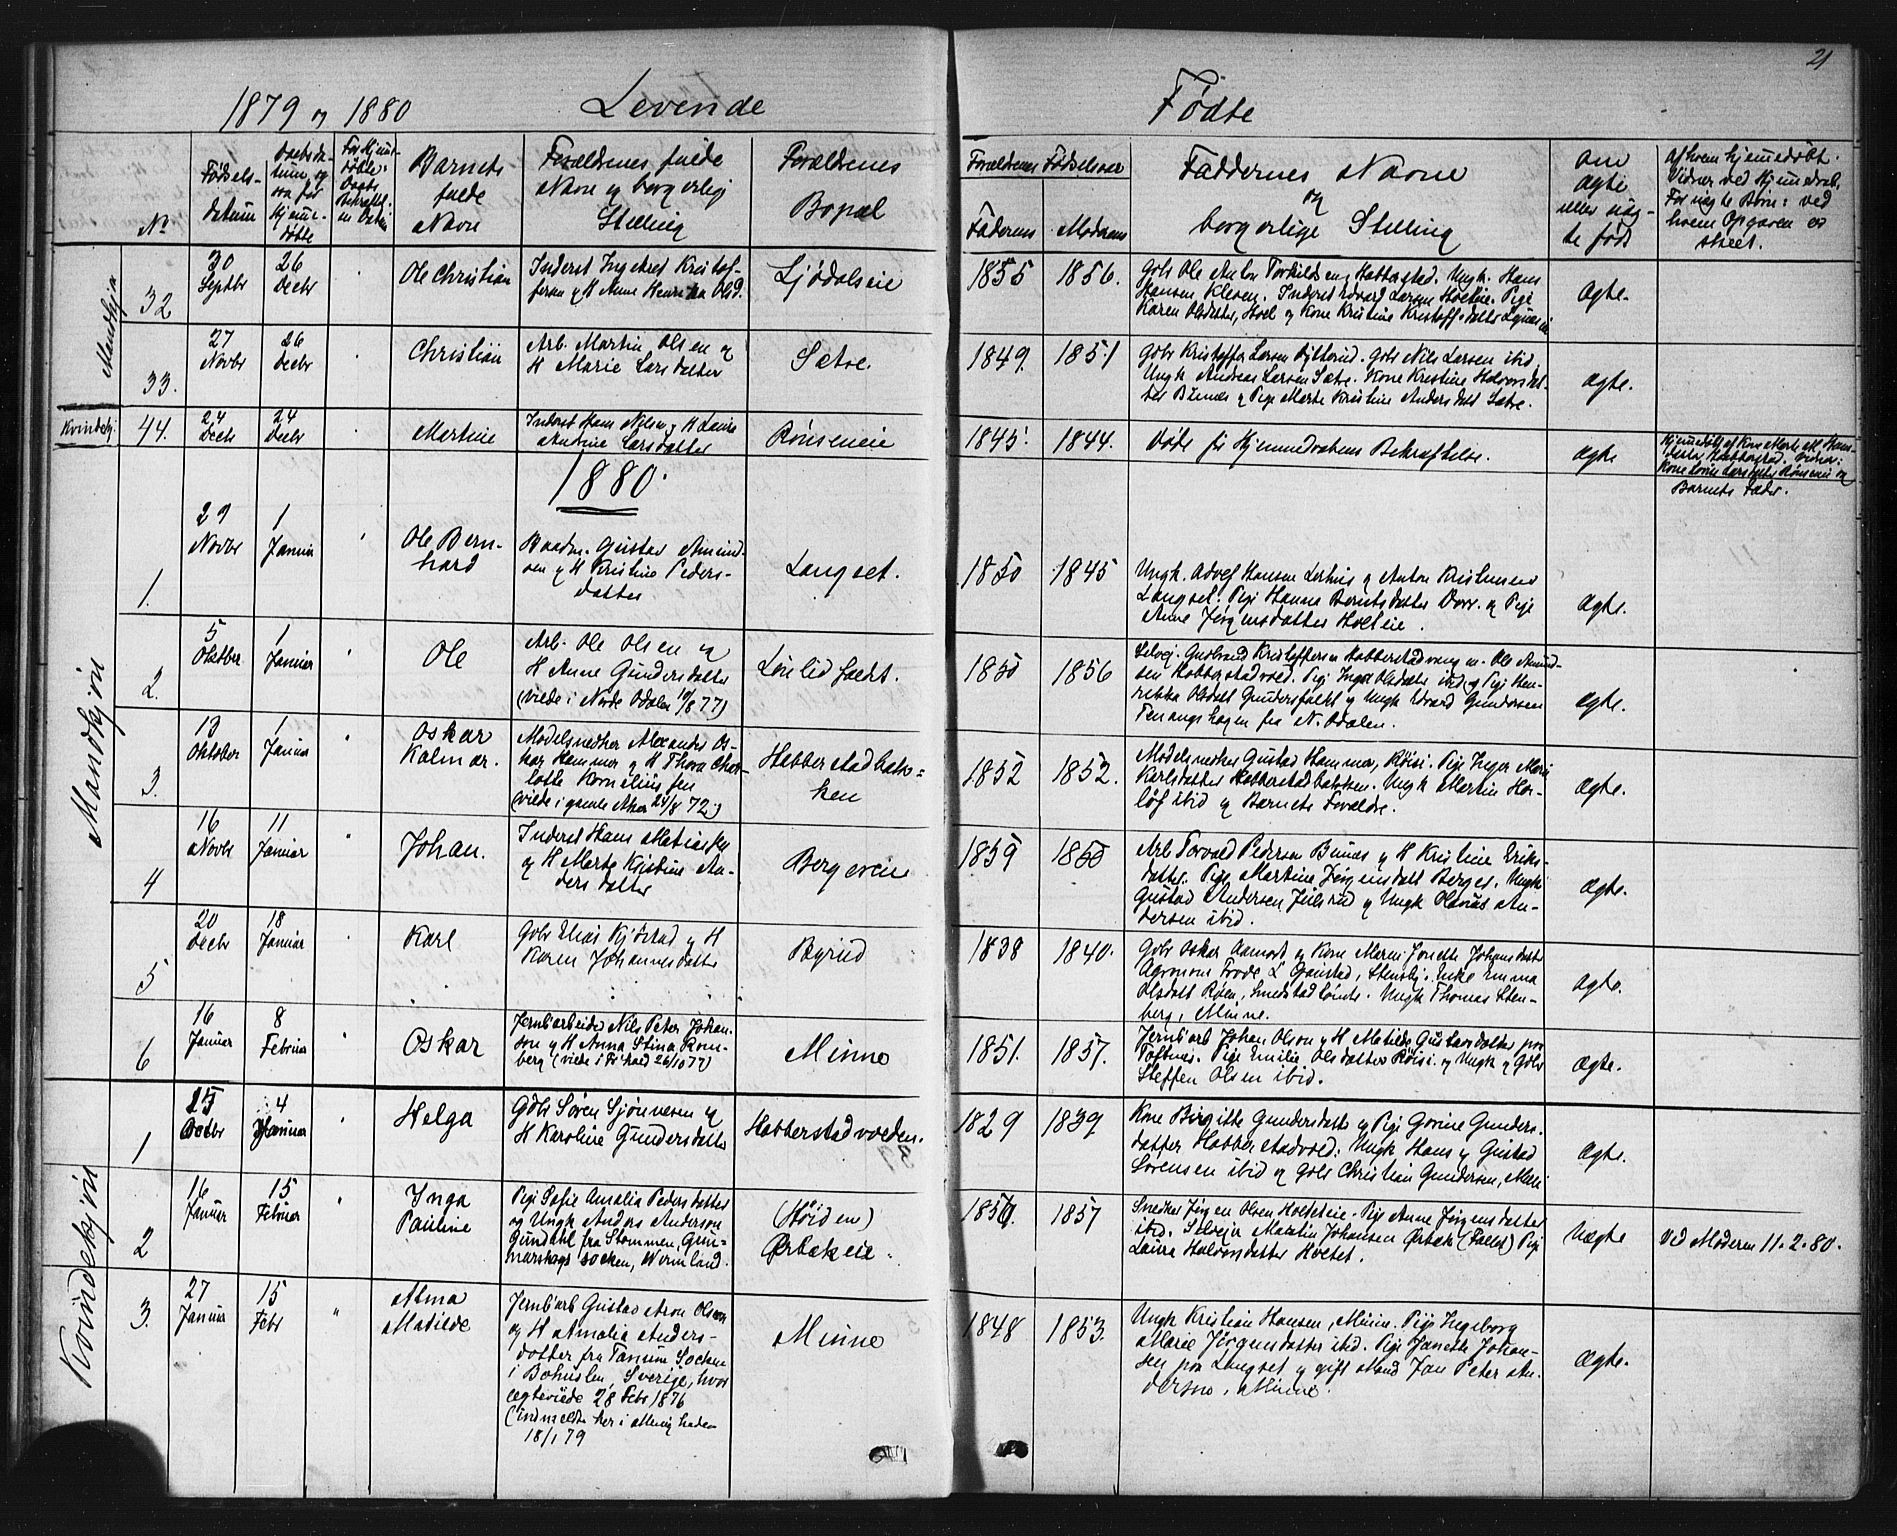 21
1879 og 1880 Levende Fødte
No
Fødsels-
datum
Barnets
fulde
Navn
Forældrenes fulde
Navne og borgerlig
Stilling
Forældrenes
Bopæl
Forældrenes Fødselsaar
Faderens Moderens
Faddernes Navne
og
borgerlige Stilling
om
ægte
eller uæg-
te født
Af hvem hjemmedøbt.
Vidner ved Hjemmedaab.
For uægte Børn: ved
hvem Opgaven er
skeet.
Mandkjøn
32
30
Septbr
26
Decbr
Ole Christian
Inderst Ingebret Kristof-
fersen og H Anne Henrikka Olsd.
Ljødalseie
1855
1856.
Gbr Ole Anton Torkildsen, Habberstad. Ungk. Hans
Hansen Kleven. Inderst Edvard Larsen Holteie. Pige
Karen Olsdatter, Hoel og Kone Kristine Kristoffersdatter
ægte.
33.
27
Novbr
26
Decbr
Christian
Arb. Martin Olsen og
H Marie Larsdatter
Sætre.
1849.
1851
Gbr Kristoffer Larsen Gbr Nils Larsen ibid,
Ungk Andreas Larsen Sætre. Kone Kristine Halvorsdat-
ter Bunæs og Pige Marte Kristine Andersdatt Sætre.
ægte.
Kvindekj.
44.
24
Decbr
24
Decbr
Martine
Inderst Hans Nilsen og H Lovise
Andrine Larsdatter
Rønseneie
1845.
1844.
Døde før Hjemmedaabens Bekræftelse.
ægte
Hjemmedøbt af Kone Marte M. Hans-
datter Habberstad. Vidner:
Kone Lovise Larsdatter Rønseneie og
Barnets Fader.
1880.
Mandkjøn
1.
29
Novbr
1
Januar
Ole Bern-
hard
Baadm. Gustav Amund-
sen og H Kristine Peders-
datter
Langset.
1850
1845
Ungk. Adolf Hansen og Anton Kristiansen
Langset. Pige Hanna Berntsdatter Dorr. og Pige
Anne Jørgensdatter Holteie.
ægte.
2.
5
Oktober
1
Januar
Ole
Arb. Ole Olsen og
H Anne Gundersdatter
(viede i Nordre Odalen 10/8 77)
Lønlidfaldt.
1850
1856
Selvej. Gudbrand Kristoffersen Habberstadvang. Ole Amund-
sen Habberstadvold. Pige Inger Olsdatter ibid og Pige Hen-
rikka Olsdatt Gundersfaldt og Ungk Edvard Gundersen
fra N. Odalen.
ægte.
3.
13
Oktober
1
Januar
Oskar
Kalmar.
Modelsnedker Alexander Os-
kar Hammer og H Thora Char-
lotte Korneliussen
(viede i gamle Aker 24/8 72)
Habberstadbak-
ken
1852
1852.
Modelsnedker Gustav Hammer, Røisi. Pige Inger Marie
Karlsdatter Habberstadbakken. Ungk Martin Her-
løf ibid og Barnets Forældre.
ægte.
4
16
Novbr
11
Januar
Johan.
Inderst Hans Matiasen
og H Marte Kristine An-
dersdatter
Bergereie
1859
1850
Arb Torvald Pedersen Bunæs og H Kristine Eriks-
datter. Pige Martine Jørgensdatt Berger. Ungk
Gustav Andersen Julsrud og Ungk Olavus An-
dersen ibid.
ægte.
5
20
Decbr
18
Januar
Karl
Gbr Elias Kjøstad og H
Karen Johannesdatter
Byrud
1838
1840.
Gbr Oskar Aamodt og Kone Maren Jonette Johansdatter
Agronom Frode L Ganstad, Stensby. Enke Emma
Olsdatt Røen, Smedstad søndre. Ungk Thomas Sten-
berg, Minne.
ægte.
6
16
Januar
8
Februar
Oskar
Jernb.arbeider Nils Peter Johan-
son og H Anna Stina Rom-
berg (viede i Fr.hald 26/10 77)
Minne
1851.
1857.
Jernb.arb Johan Olson og H Matilde Gustavsdatter paa
Toftnes. Pige Emilie Olsdatter Røisi. og Ungk og Gbr
Steffen Olsen ibid.
ægte.
Kvindekjøn
1
25
Octbr
4
Januar
Helga
Gbr Søren Sjønnesen og
H Karoline Gundersdatter
Habberstadvolden.
1829
1839
Kone Birgitte Gundersdatter og Pige Gorine Gunders-
datter Habberstadvold. Ungk Hans og Gustav
Sørensen ibid og Gbr Christian Gundersen, Møri
ægte.
2
16
Januar
15
Februar
Inga
Pauline
Pige Sofie Amalia Pedersdatter
og Ungk Anders Anderson
Gundahl fra Stommen, Gun-
narskogs socken, Wermland.
(Høiden)
Ørbækeie.
1857
Snedker Jørgen Olsen Holteeie. Pige Anne Jørgensdatter
ibid. Selvejer Martin Johansen Ørbæk (Fallet) Pige
Laura Halvorsdatter Holtet.
Uægte
Ved Moderen 11.2.80.
3.
27
Januar
15
Febr
"
Alma
Matilde
Jernb.arb Gustav Aron Olson
og H Amalia Anders-
datter fra Tanum Socken
i Bohuslen, Sverige, hvor
ægteviede 28 Febr 1876
(indmeldte her i Menigheden
18/1 79
Minne
1848
1853.
Ungk Kristian Hansen, Minne. Pige Ingeborg
Marie Jørgensdatter ibid. Pige Janette Johan-
sen paa Langset og gift Mand Jan Peter An-
derson, Minne.
ægte.